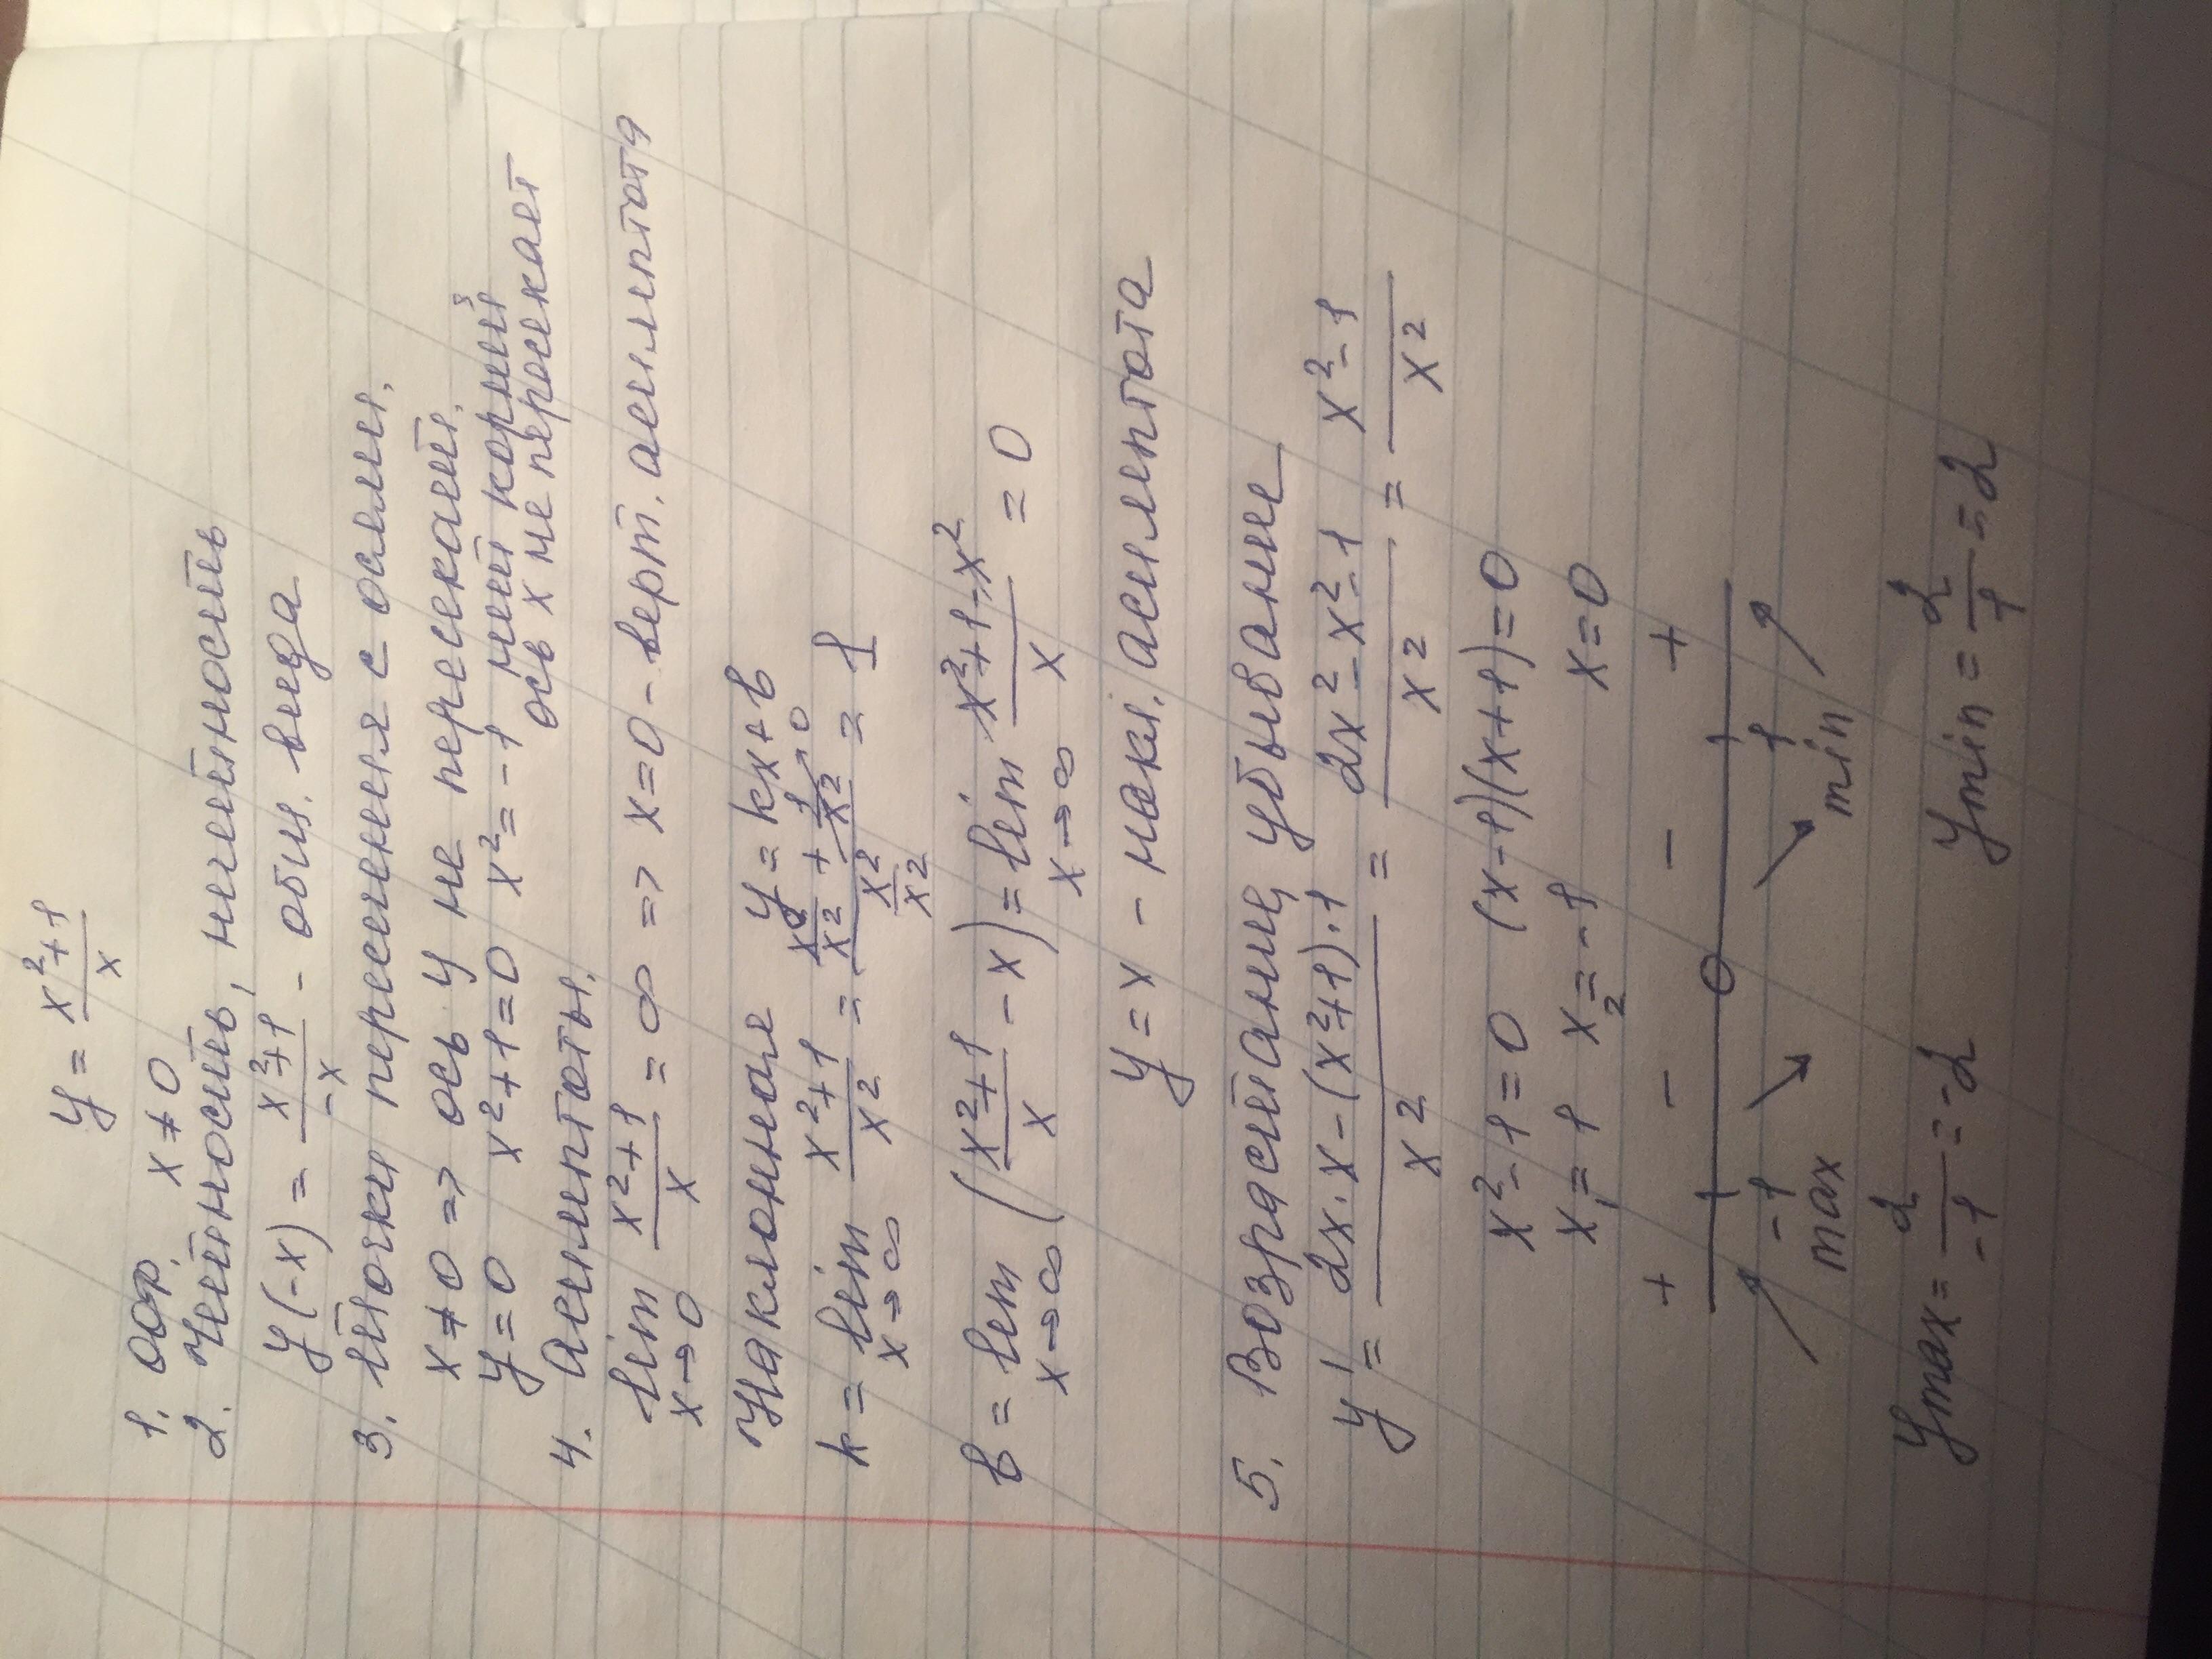 y = (x²+1)/x
1. ООФ. x ≠ 0
2. Четность, нечетность
y(-x) = (x²+1)/(-x) - общ. вида
3. Точки пересечения с осями.
x ≠ 0 => ось y не пересекает.
y = 0 x²+1=0 x² = -1 нет корней
ось x не пересекает
4. Асимптоты.
lim x→0 (x²+1)/x = ∞ => x=0 - верт. асимптота
Наклонная y = kx+b
k = lim x→∞ (x²+1)/x² = (x²/x² + 1/x² →0)/(x²/x²) = 1
b = lim x→∞ ((x²+1)/x - x) = lim x→∞ (x²+1-x²)/x = 0
y = x - накл. асимптота
5. Возрастание, убывание
y' = (2x·x-(x²+1)·1)/x² = (2x²-x²-1)/x² = (x²-1)/x²
x²-1=0 (x-1)(x+1)=0
x₁=1 x₂=-1 x=0
+ - - +
-1 0 1
max min
ymax = 2/-1 = -2 ymin = 2/1 = 2